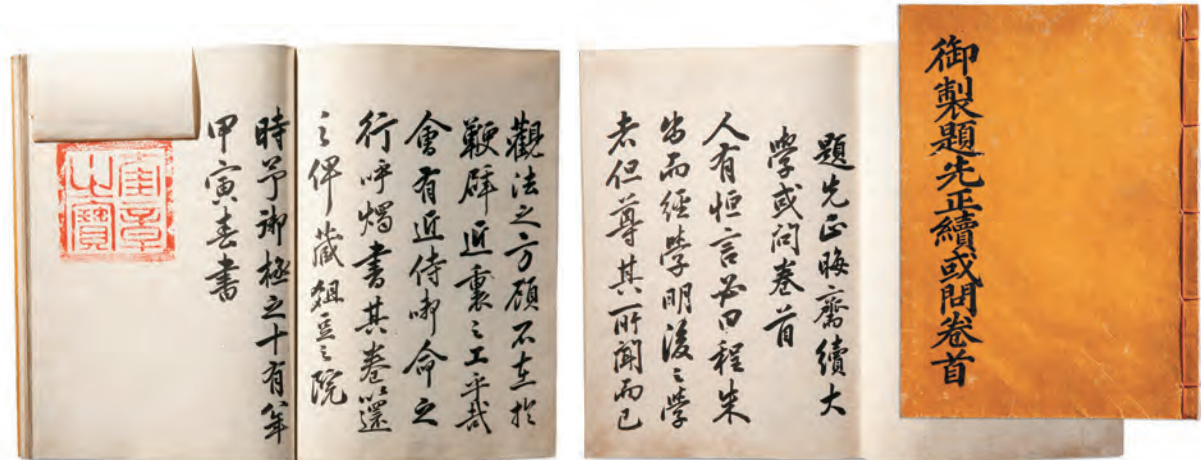 御製題先正續或問卷首
題先正晦齋續大
學或問卷首
人有恒言必曰程朱
出而經學明後之學
者但尊其所聞而已
觀法之方顧不在於
鞭辟近裏之工乎哉
會有近侍啣命之
行呼燭書其卷以還
之俾藏俎豆之院
時予御極之十有八年
甲寅春書